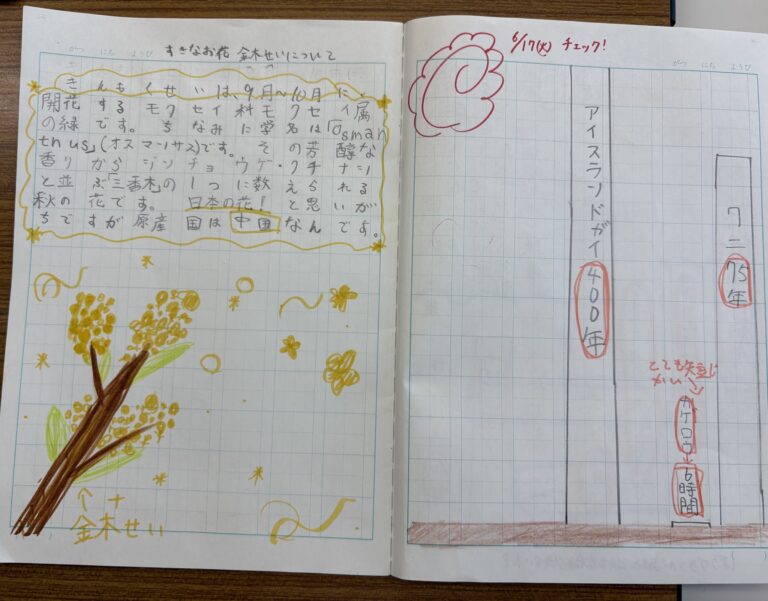 すきなお花 金木せいについて
きんもくせいは、9月〜10月に、
開花するモクセイ科モクセイ属
の緑です。ちなみに学名は「Osman
thus」(オスマンサス)です。その芳醇な
香りからジンチョウゲ・クチナシ
と並ぶ「三香木」の1つに数えられる
秋の花です。日本の花!と思いが
ちですが原産国は中国なんです。
↑
金木せい
がつ にち ようび
6/17(火) チェック!
がつ にち ようび
アイスランドガイ400年
ワニ75年
とても短い
カゲロウ
6時間